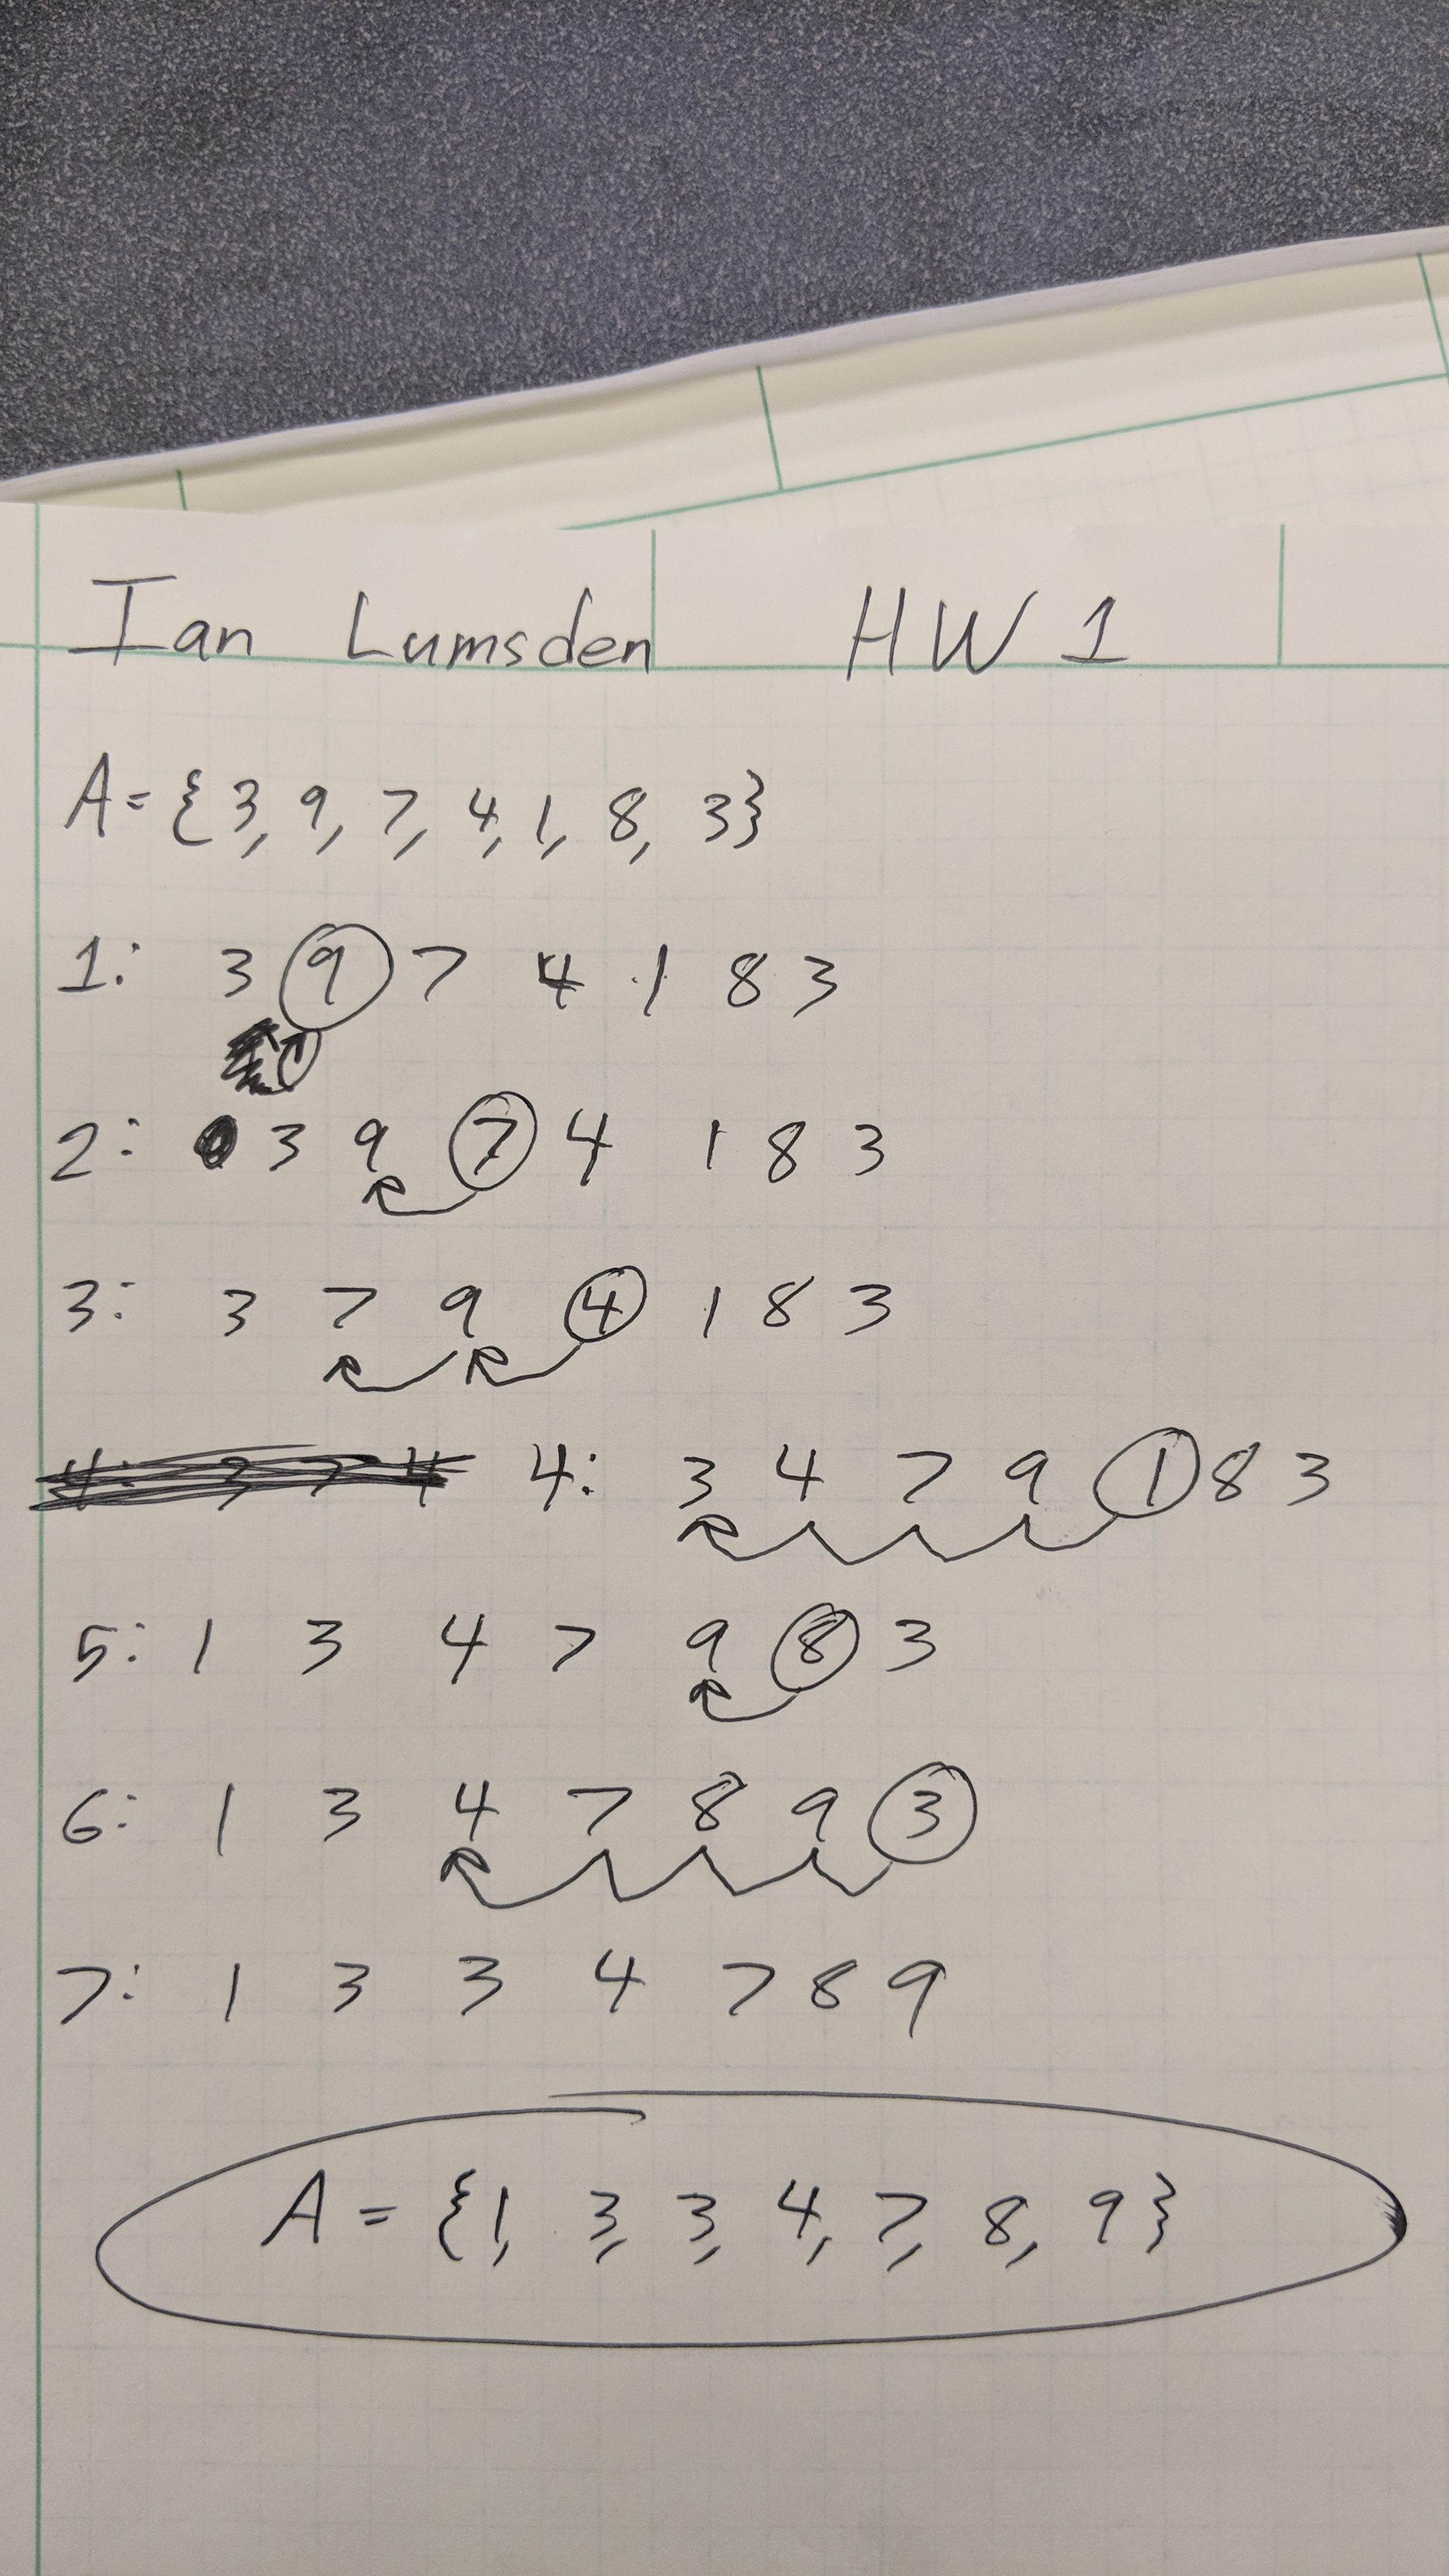 Ian Lumsden HW 1
A = {3, 9, 7, 4, 1, 8, 3}
1: 3 9 7 4 1 8 3
2: 3 9 7 4 1 8 3
3: 3 7 9 4 1 8 3
4: 3 7 4 4: 3 4 7 9 1 8 3
5: 1 3 4 7 9 8 3
6: 1 3 4 7 8 9 3
7: 1 3 3 4 7 8 9
A = {1, 3, 3, 4, 7, 8, 9}